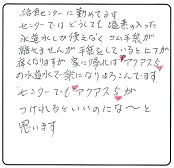 給食センターに勤めてます
センターではどうしても塩素の入った
水道水しか使えなくゴム手袋が
離せませんが手袋をしていると仕事が
遅くなりますが 家に帰れば♥アクアス5♥
の水道水で楽になりよろこんでます
センターでも♥アクアス5が
つけれるといいのにな〜と
思います